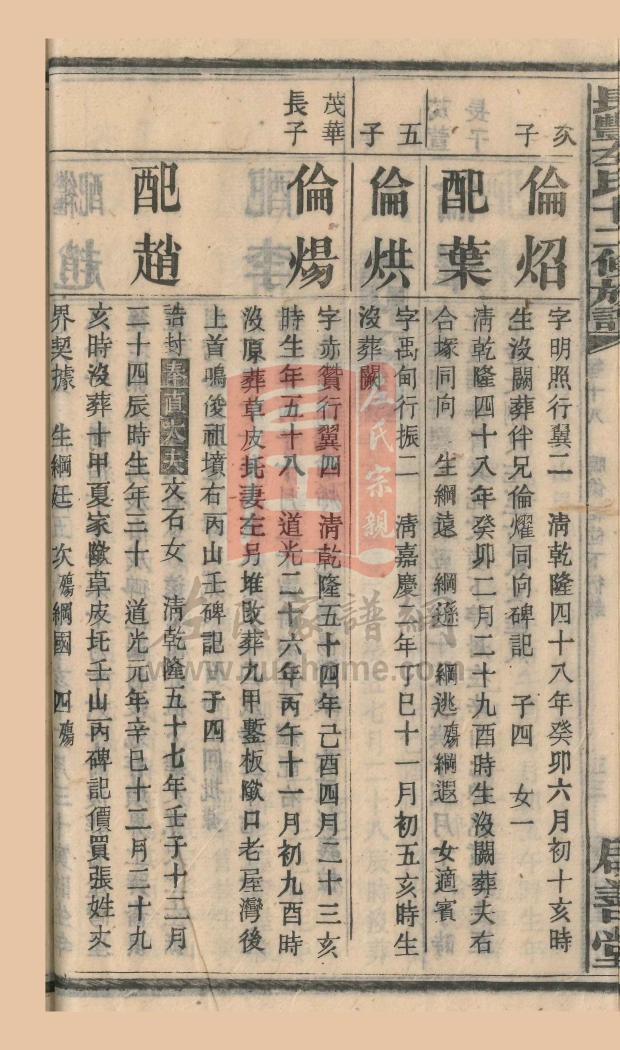 長豐左氏十二修族譜
啟善堂
次子
倫炤
字明照行翼二 清乾隆四十八年癸卯六月初十亥時
生沒闕葬伴兄倫燿同向碑記 子四 女一
配葉
清乾隆四十八年癸卯二月二十九酉時生沒闕葬夫右
合塚同向 生綱遠 綱遜 綱逃殤綱遐 女適賓
五子
倫烘
字禹甸行振二 清嘉慶二年丁巳十一月初五亥時生
沒葬闕
茂華長子
倫煬
字赤鑽行翼四 清乾隆五十四年己酉四月二十三亥
時生年五十八 道光二十六年丙午十一月初九酉時
沒原葬草皮圫妻左另堆改葬九甲鏨板歘口老屋灣後
上首鳴俊祖墳右丙山壬碑記 子四
配趙
誥封奉直大夫文石女 清乾隆五十七年壬子十二月
二十四辰時生年三十 道光元年辛巳十二月二十九
亥時沒葬十甲夏家歘草皮圫壬山丙碑記價買張姓丈
界契據 生綱廷 次殤綱國 四殤
左氏宗親
左氏家譜網